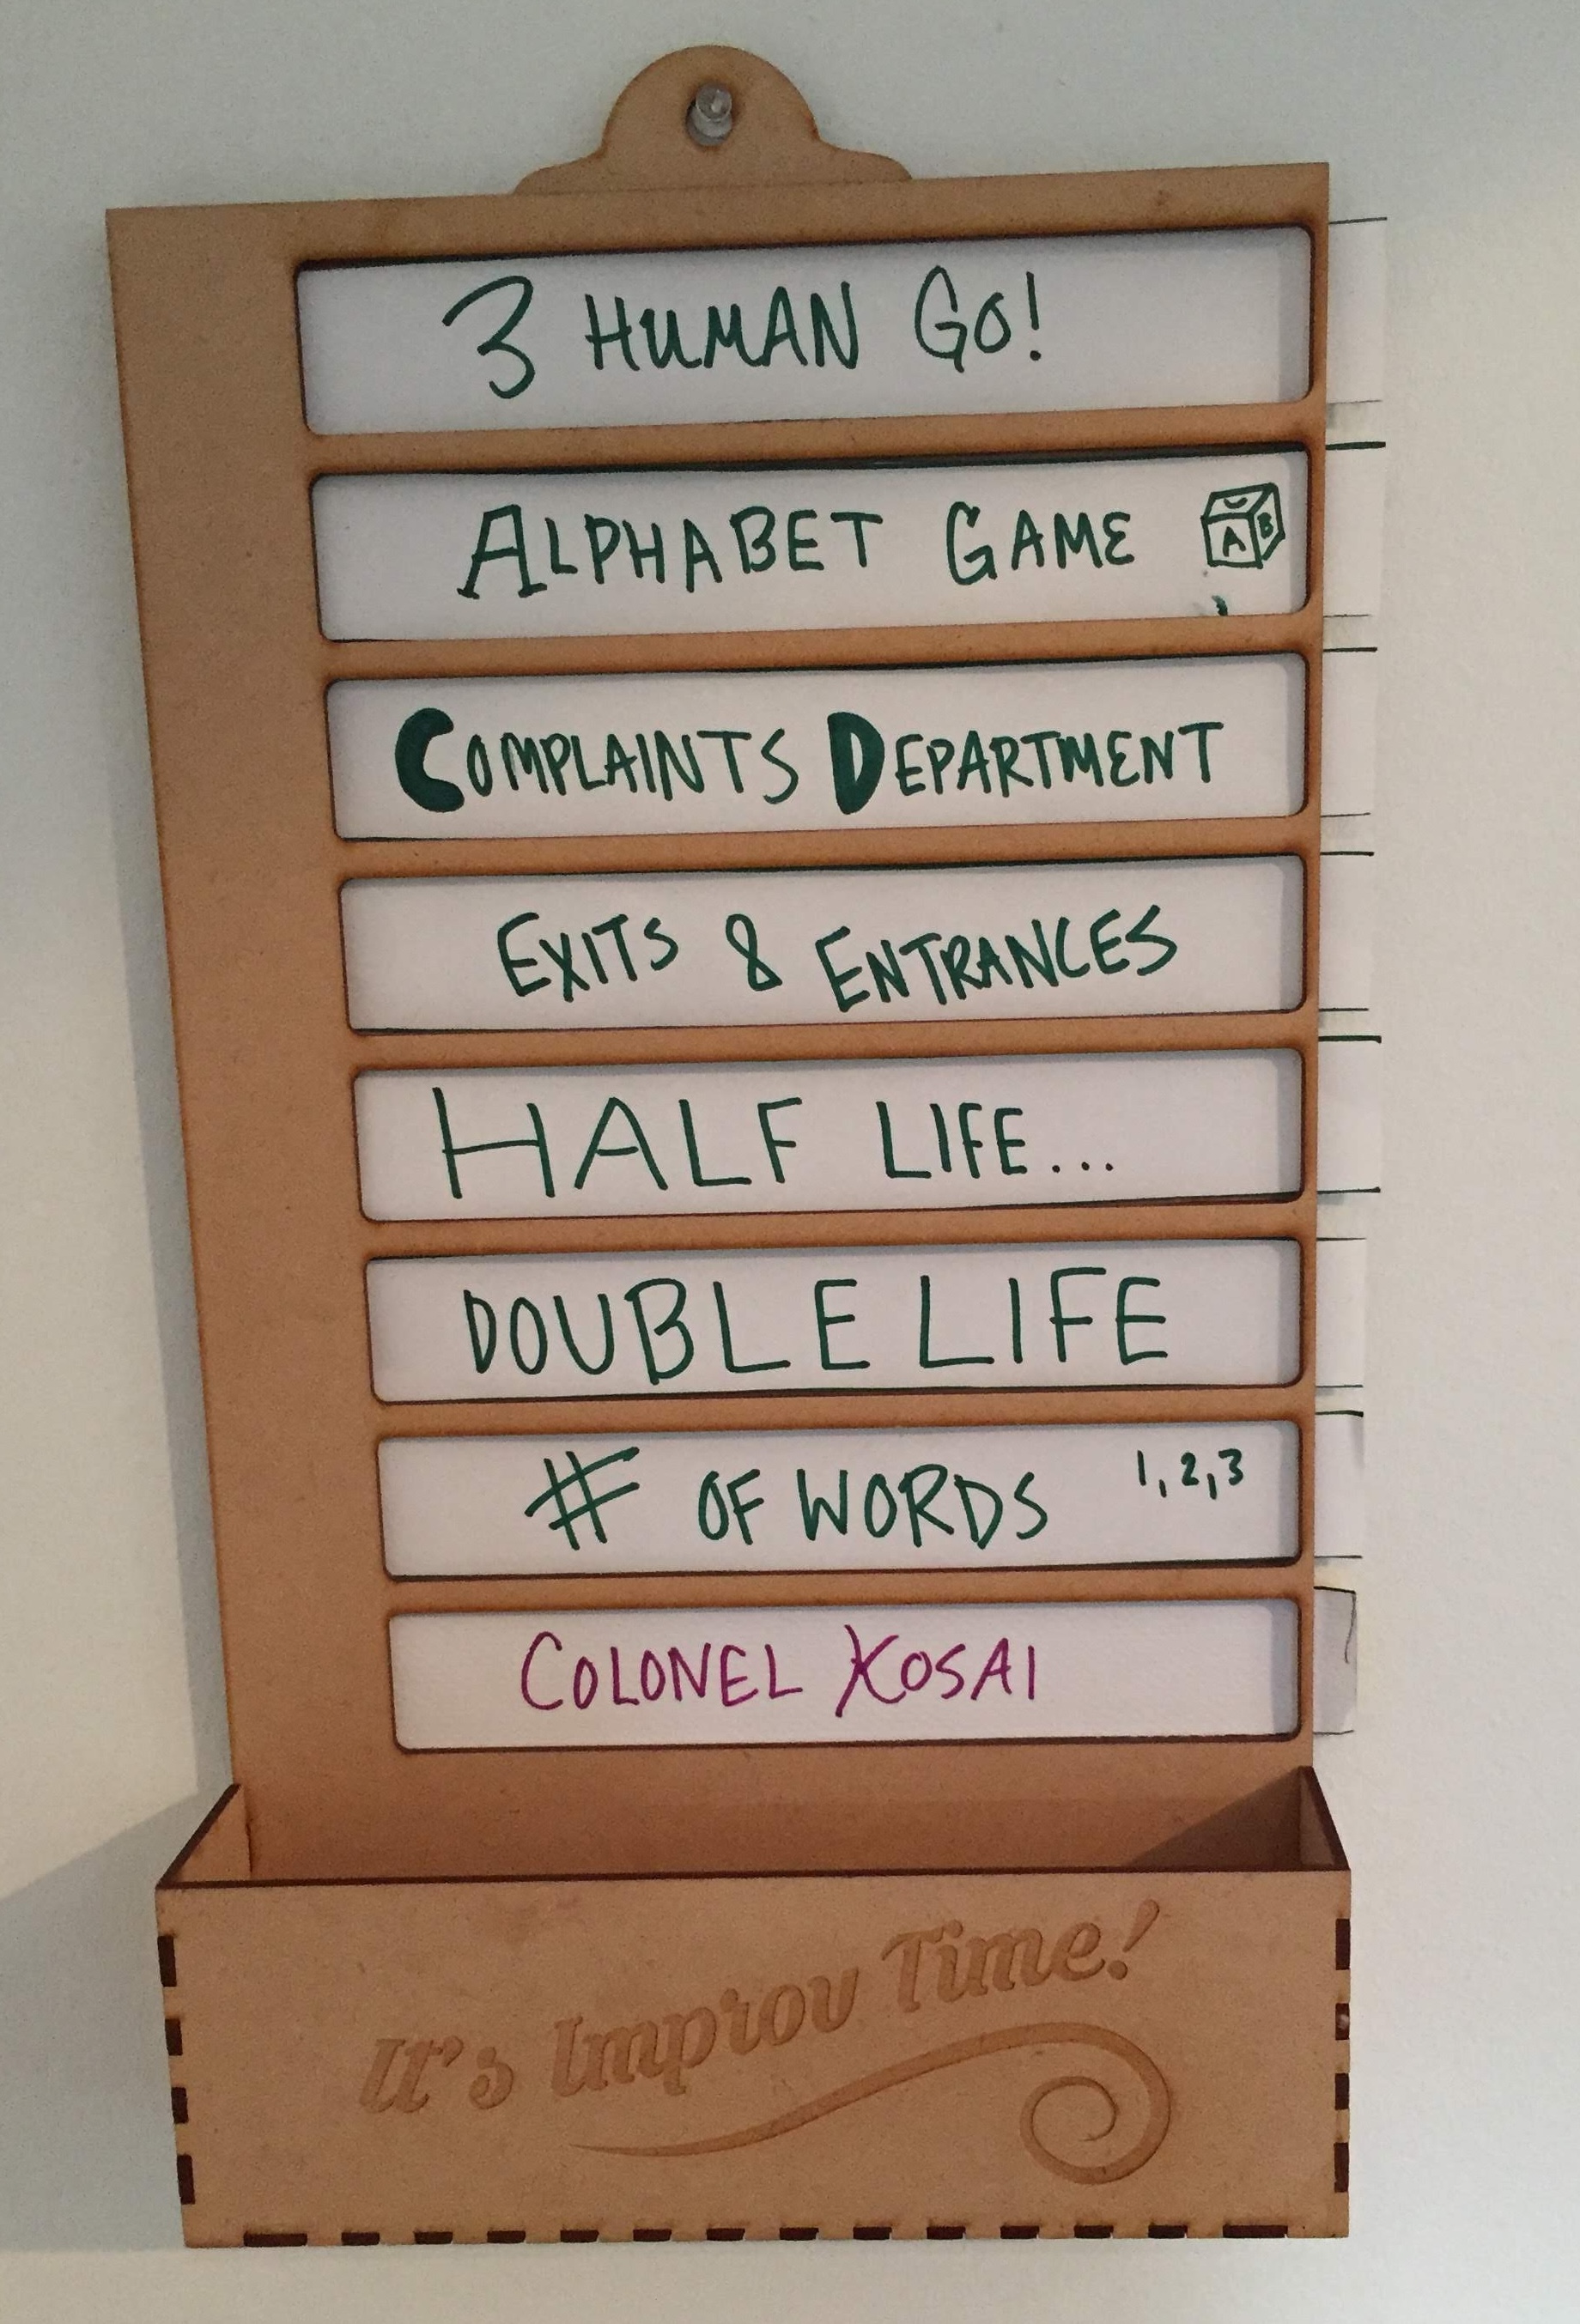 3 HUMAN GO!
ALPHABET GAME A B
COMPLAINTS DEPARTMENT
EXITS & ENTRANCES
HALF LIFE...
DOUBLE LIFE
# OF WORDS 1,2,3
COLONEL KOSAI
It's Improv Time!